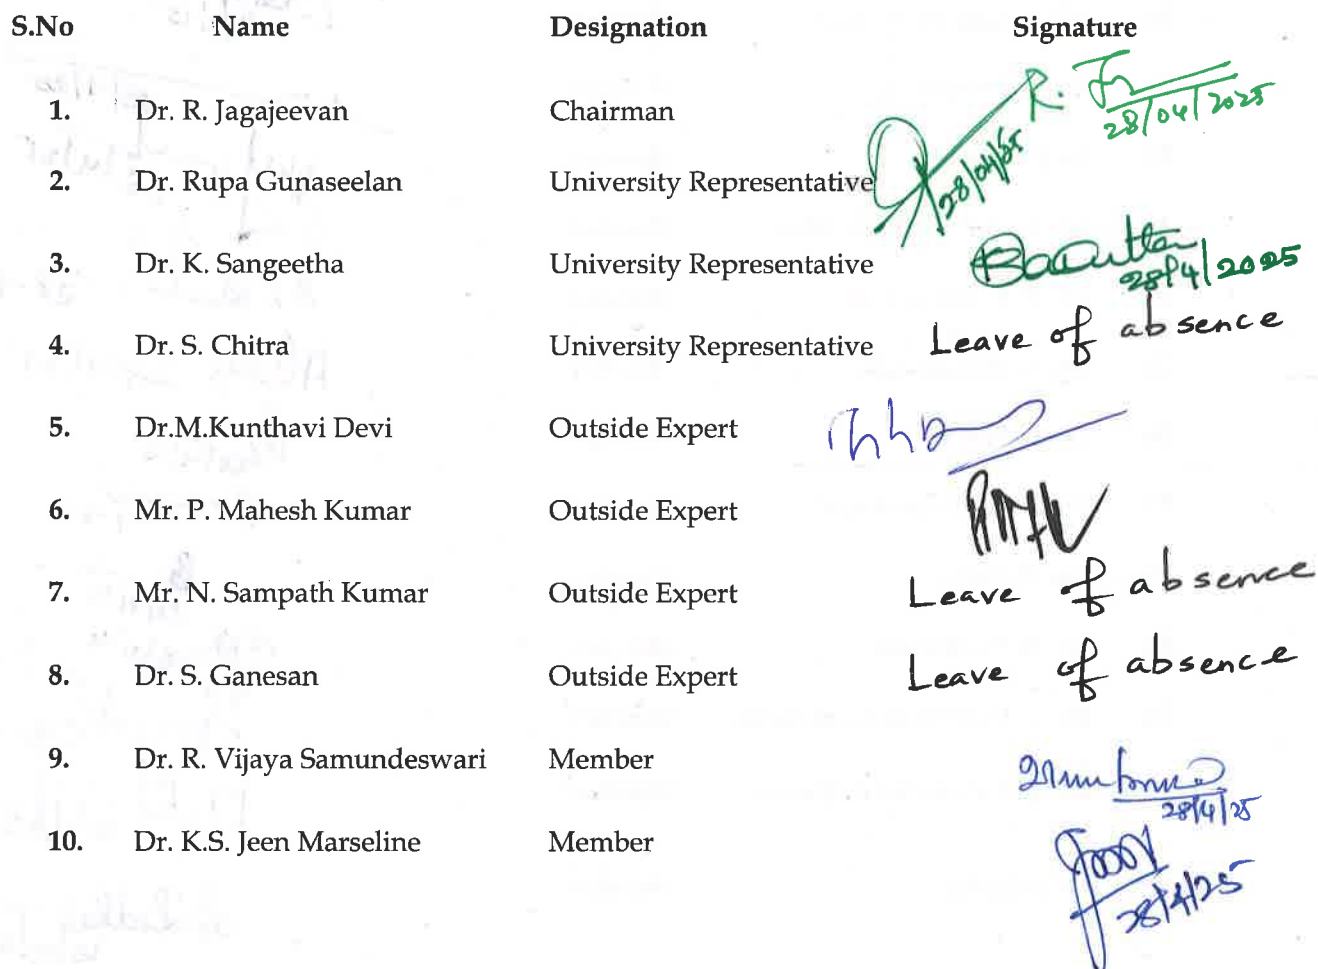 S.No Name Designation Signature
1. Dr. R. Jagajeevan Chairman R.
28/04/2025
2. Dr. Rupa Gunaseelan University Representative 28/04/25
3. Dr. K. Sangeetha University Representative
28/4/2025
4. Dr. S. Chitra University Representative Leave of absence
5. Dr.M.Kunthavi Devi Outside Expert
6. Mr. P. Mahesh Kumar Outside Expert
7. Mr. N. Sampath Kumar Outside Expert Leave of absence
8. Dr. S. Ganesan Outside Expert Leave of absence
9. Dr. R. Vijaya Samundeswari Member
28/4/25
10. Dr. K.S. Jeen Marseline Member
28/4/25